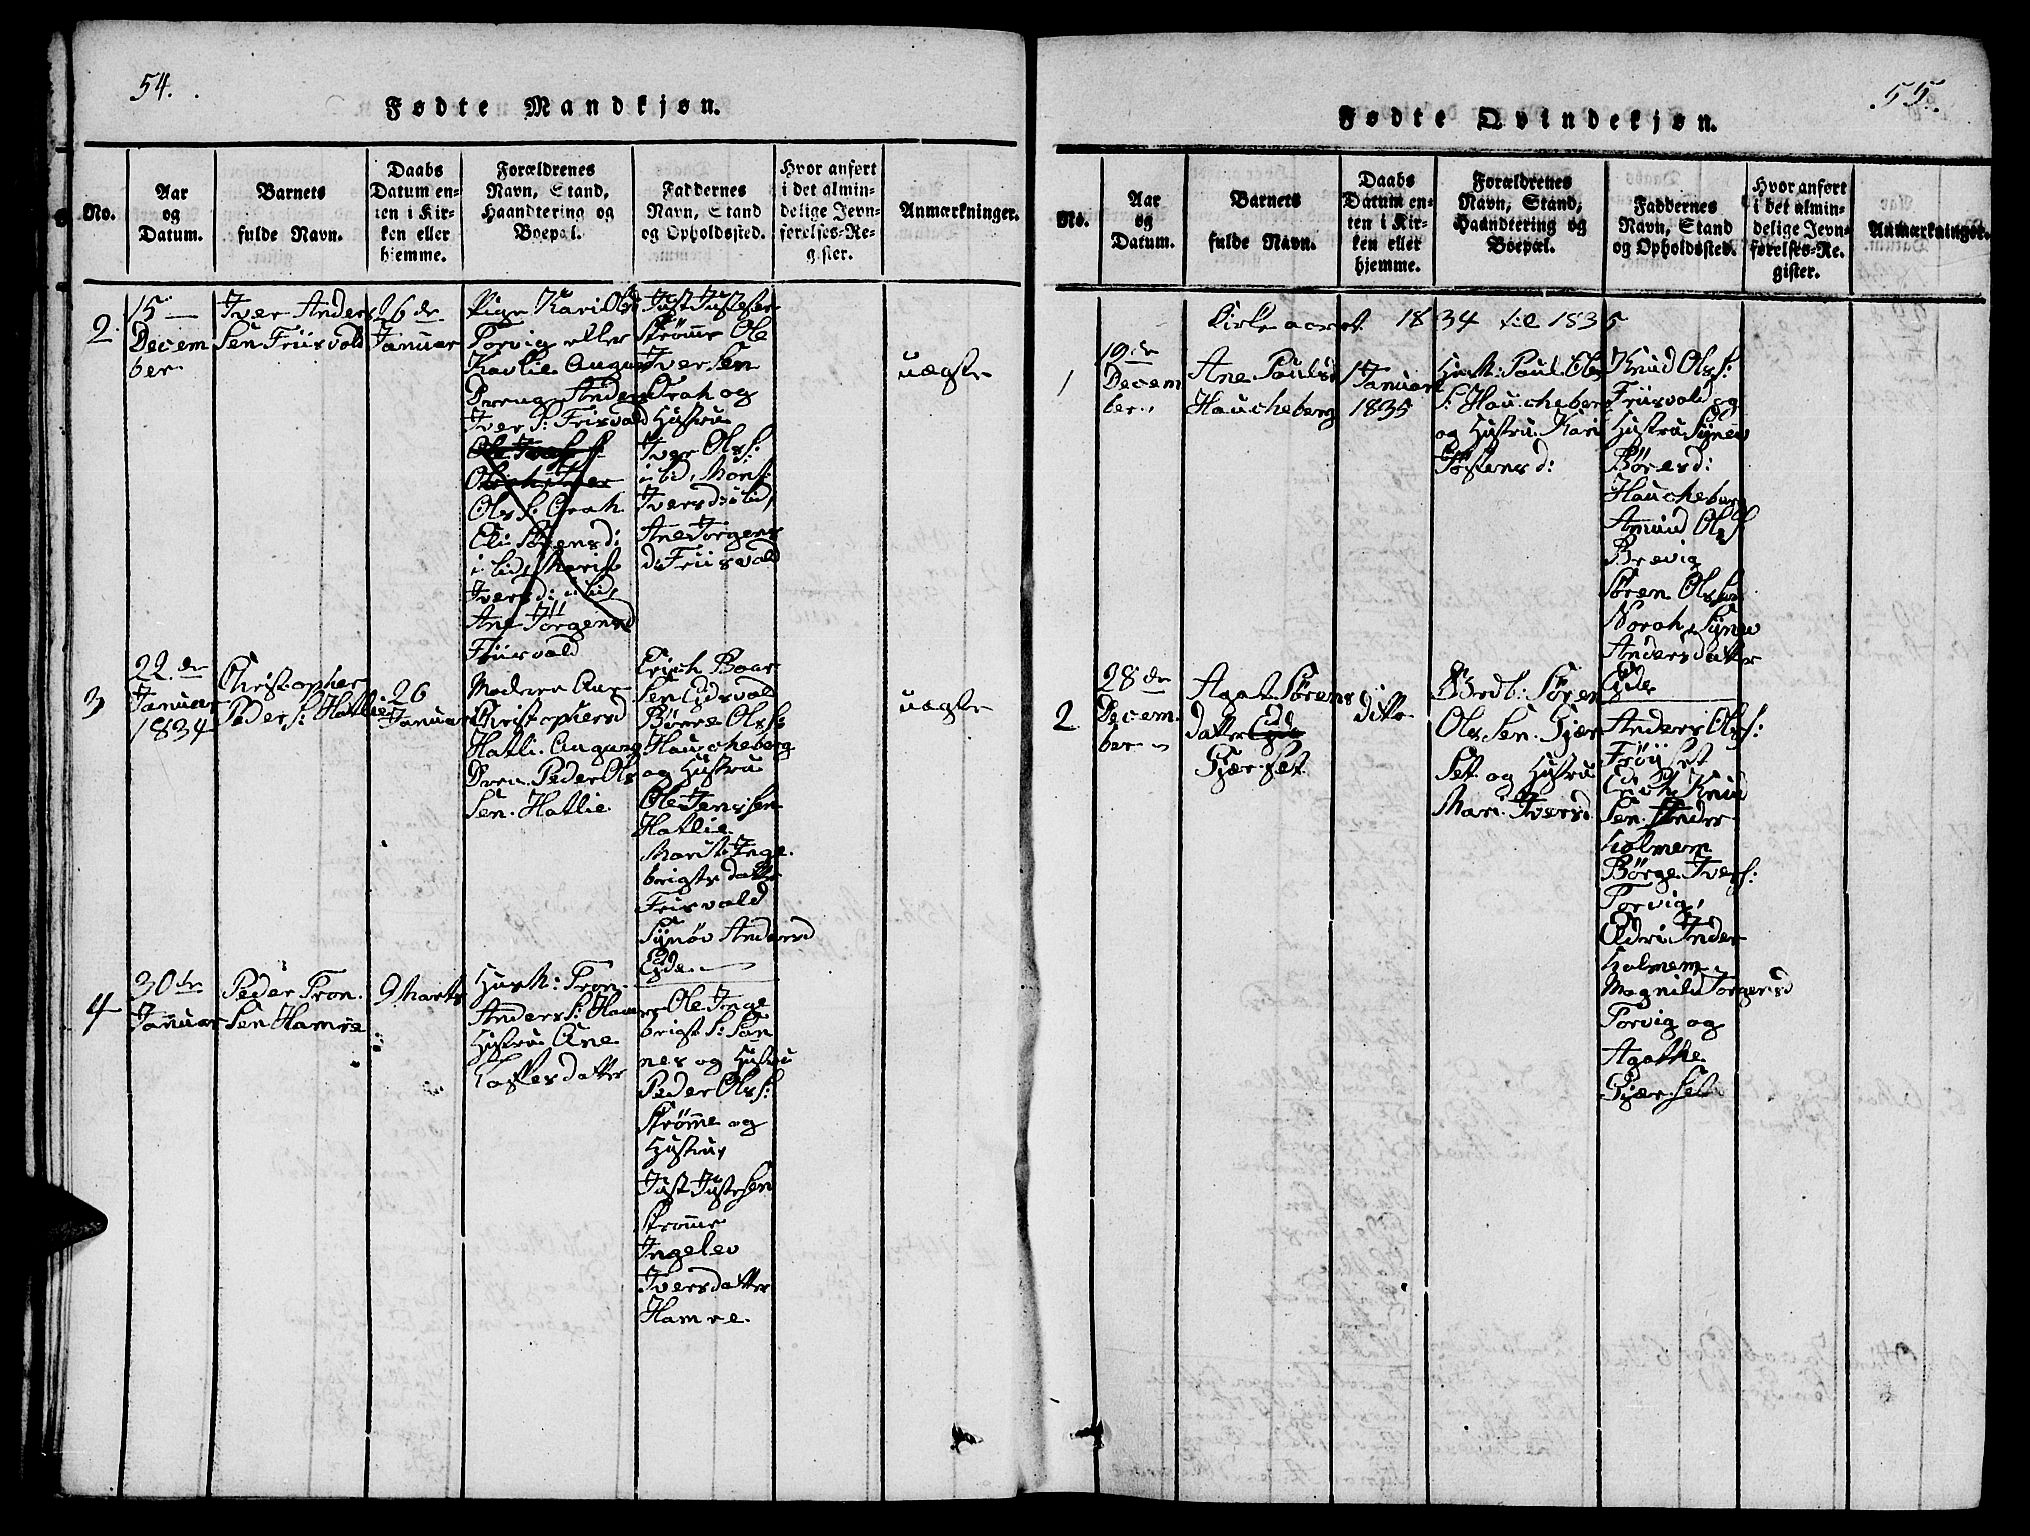 54.
Fødte Mandkjøn.
No.
Aar
og
Datum.
Barnets
fulde Navn.
Daabs
Datum en-
ten i Kir-
ken eller
hjemme.
Forældrenes
Navn, Stand,
Haandtering og
Boepæl.
Faddernes
Navn, Stand
og Opholdssted.
Hvor anført
i det almin-
delige Jevn-
førelses-Re-
gister.
Anmærkninger.
2
15
Decem
ber
Iver Anders
Sen Friisvold
26 de
Januar
Pige Kari Ols
Torvig eller
Iver S: Friisvold
Ols S:
Iversd: i lid,
Ane Jörgensd
Friisvold
Just Justesen
Strømme Ole
Iversen
og
Hustru
Iver Ols S:
i lid,
Iversd: i lid,
Ane Jørgens
d: Friisvold
uægte
3
22 de
Januar
1834
Christopher
Peders: Hatlie
26
Januar
Christophersd
Hatli.
Peder Ols
Sen. Hatlie
Erich Boar
Sen Eidsvold
Børre Ols S:
Haucheberg
og Hustru
Ole Jenssen
Hatlie
Marit Inge
brigts datter
Friisvold
Synøv Andersd
Eide
uægte
4
30 de
Januar
Peder Tron
Sen Hamre
9 Marts
Husm: Tron
Anders S: Hamre
Hustru Ane
datter
Ole Inge
brigt S: San
nes og Hustru
Peder Ols S:
Strømme og
Hustru,
Just Justesen
Strømme
Ingelev
Iversdatter
Hamre.
55.
Fødte Qvindekjøn.
No.
Aar
og
Datum.
Barnets
fulde Navn.
Daabs
Datum en-
ten i Kir-
ken eller
hjemme.
Forældrenes
Navn, Stand,
Haandtering og
Boepæl.
Faddernes
Navn, Stand
og Opholdssted.
Hvor anført
i det almin-
delige Jevn-
førelses-Re-
gister.
Anmærkninger.
Kirke aaret 1834 til 1835
1
19 de
Decem
ber
Ane Paulsd
Haucheberg
1 Januar
1835
Husm: Paul Ols
S: Haucheberg
og Hustru Kari
Tostensd:
Knud Ols S:
Friisvold og
Hustru Synev
Børesd:
Haucheberg
Amund Ols S
Brevig
Søren Ols
Norah, Synev
Andersdatter
Eide
2
28 de
Decem
ber
Agate Sørens
datter Eide
Gjerset
ditto
Søren
Ols Sen. Gjær
Set og Hustru
Mari Iversd
Anders Ols S:
Frøyset
Erich Knud
Sen. Inder
holmem
Børge Ivers:
Torvig,
Eldri Inder
holmem
Magnild Torgersd
Torvig og
Agathe
Gjærset